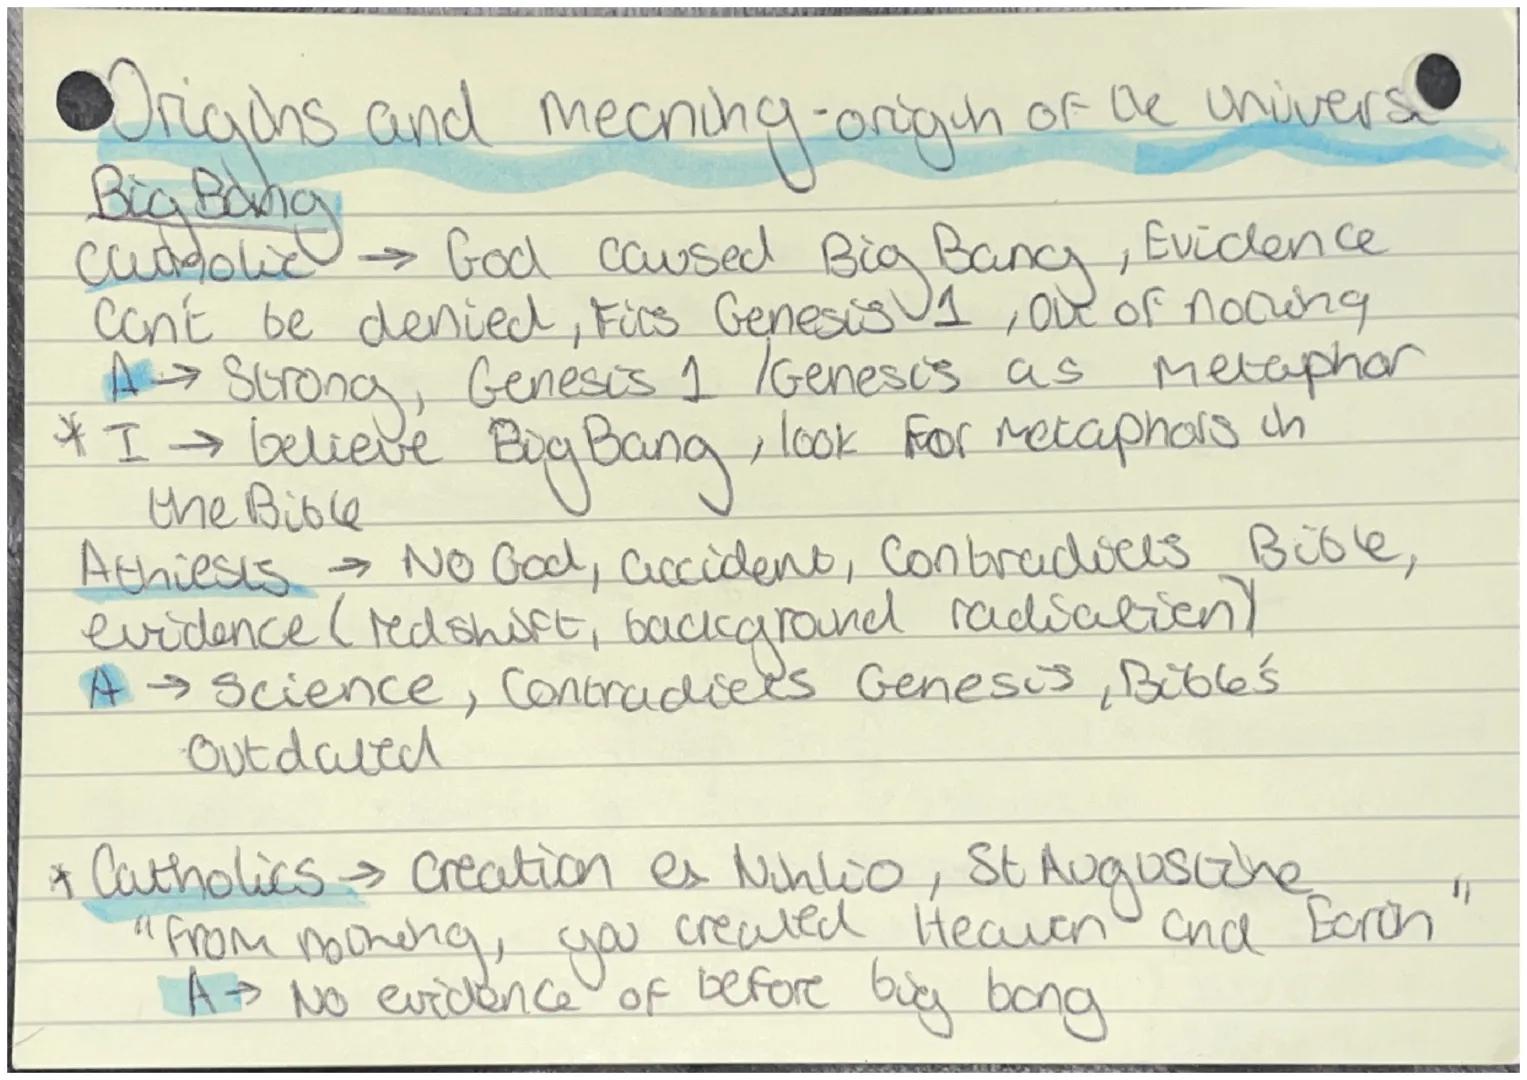 Origins and meaning - origin of the universe
Big Bang
Catholic → God caused Big Bang, Evidence
can't be denied, Fits Genesis 1, out of nothing
A → Strong, Genesis 1 / Genesis as Metaphor
* I → believe Big Bang, look for metaphors in
the Bible
Athiests → No God, accident, Contradicts Bible,
evidence (redshift, background radiation)
A → Science, Contradicts Genesis, Bible's
Outdated
* Catholics → Creation ex Nihlio, St Augustine
"From nothing, you created Heaven and Earth"
A → No evidence of before big bang